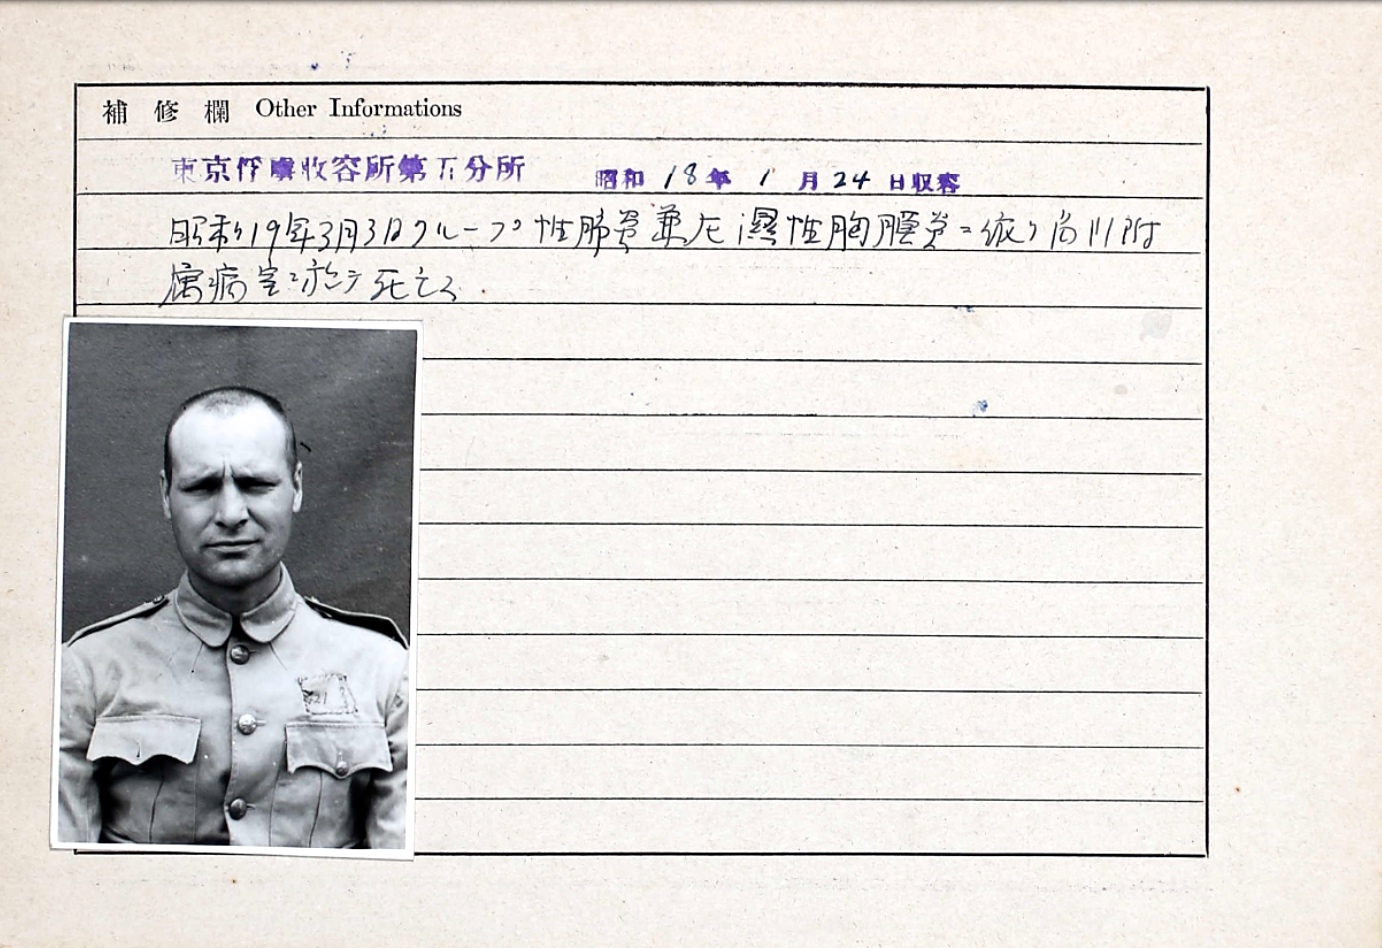 補修欄 Other Informations
東京俘虜収容所第五分所 昭和18年1月24日収容
昭和19年3月3日クループ性肺炎兼左湿性胸膜炎ニ依リ
属病室ニ於テ死亡ス